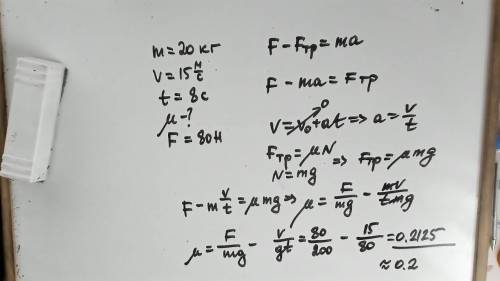 m = 20 кг
V = 15 м/с
t = 8 с
μ - ?
F = 80Н
F - Fтр = ma
F - ma = Fтр
V = V₀ + at => a = V/t
0
Fтр = μN
N = mg
=> Fтр = μmg
F - m V/t = μmg => μ = F/mg - mV/tmg
μ = F/mg - V/gt = 80/200 - 15/80 = 0,2125
≈ 0.2